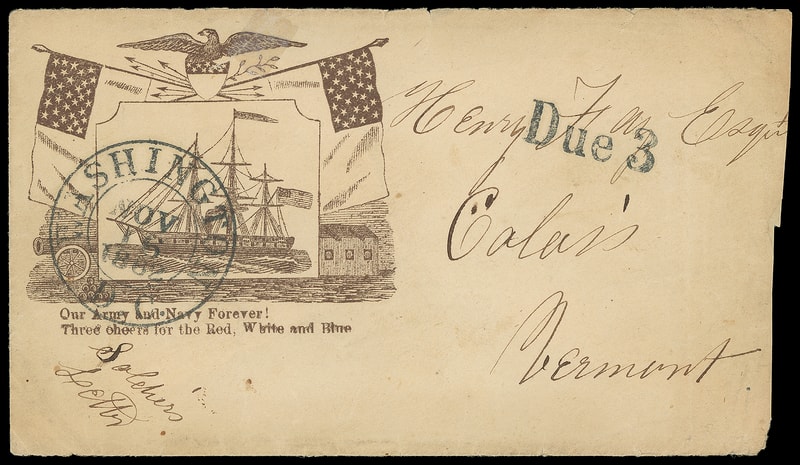 Henry Fay Esqr
Due 3
Calais
Vermont
WASHINGTON
NOV
15
1862
D C
Our Army and Navy Forever!
Three cheers for the Red, White and Blue
Soldier's
Letter